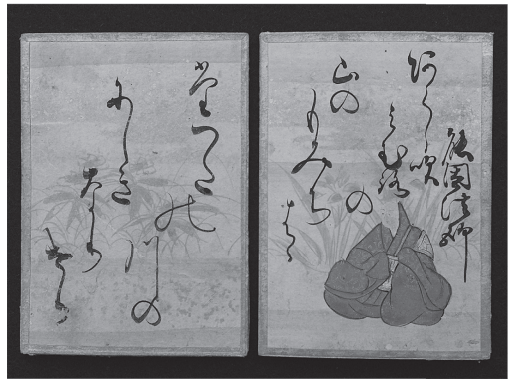 能因法師
あらし吹
みむろの
山の
もみちはゝ
たつた
の川の
にしき
なり
けり